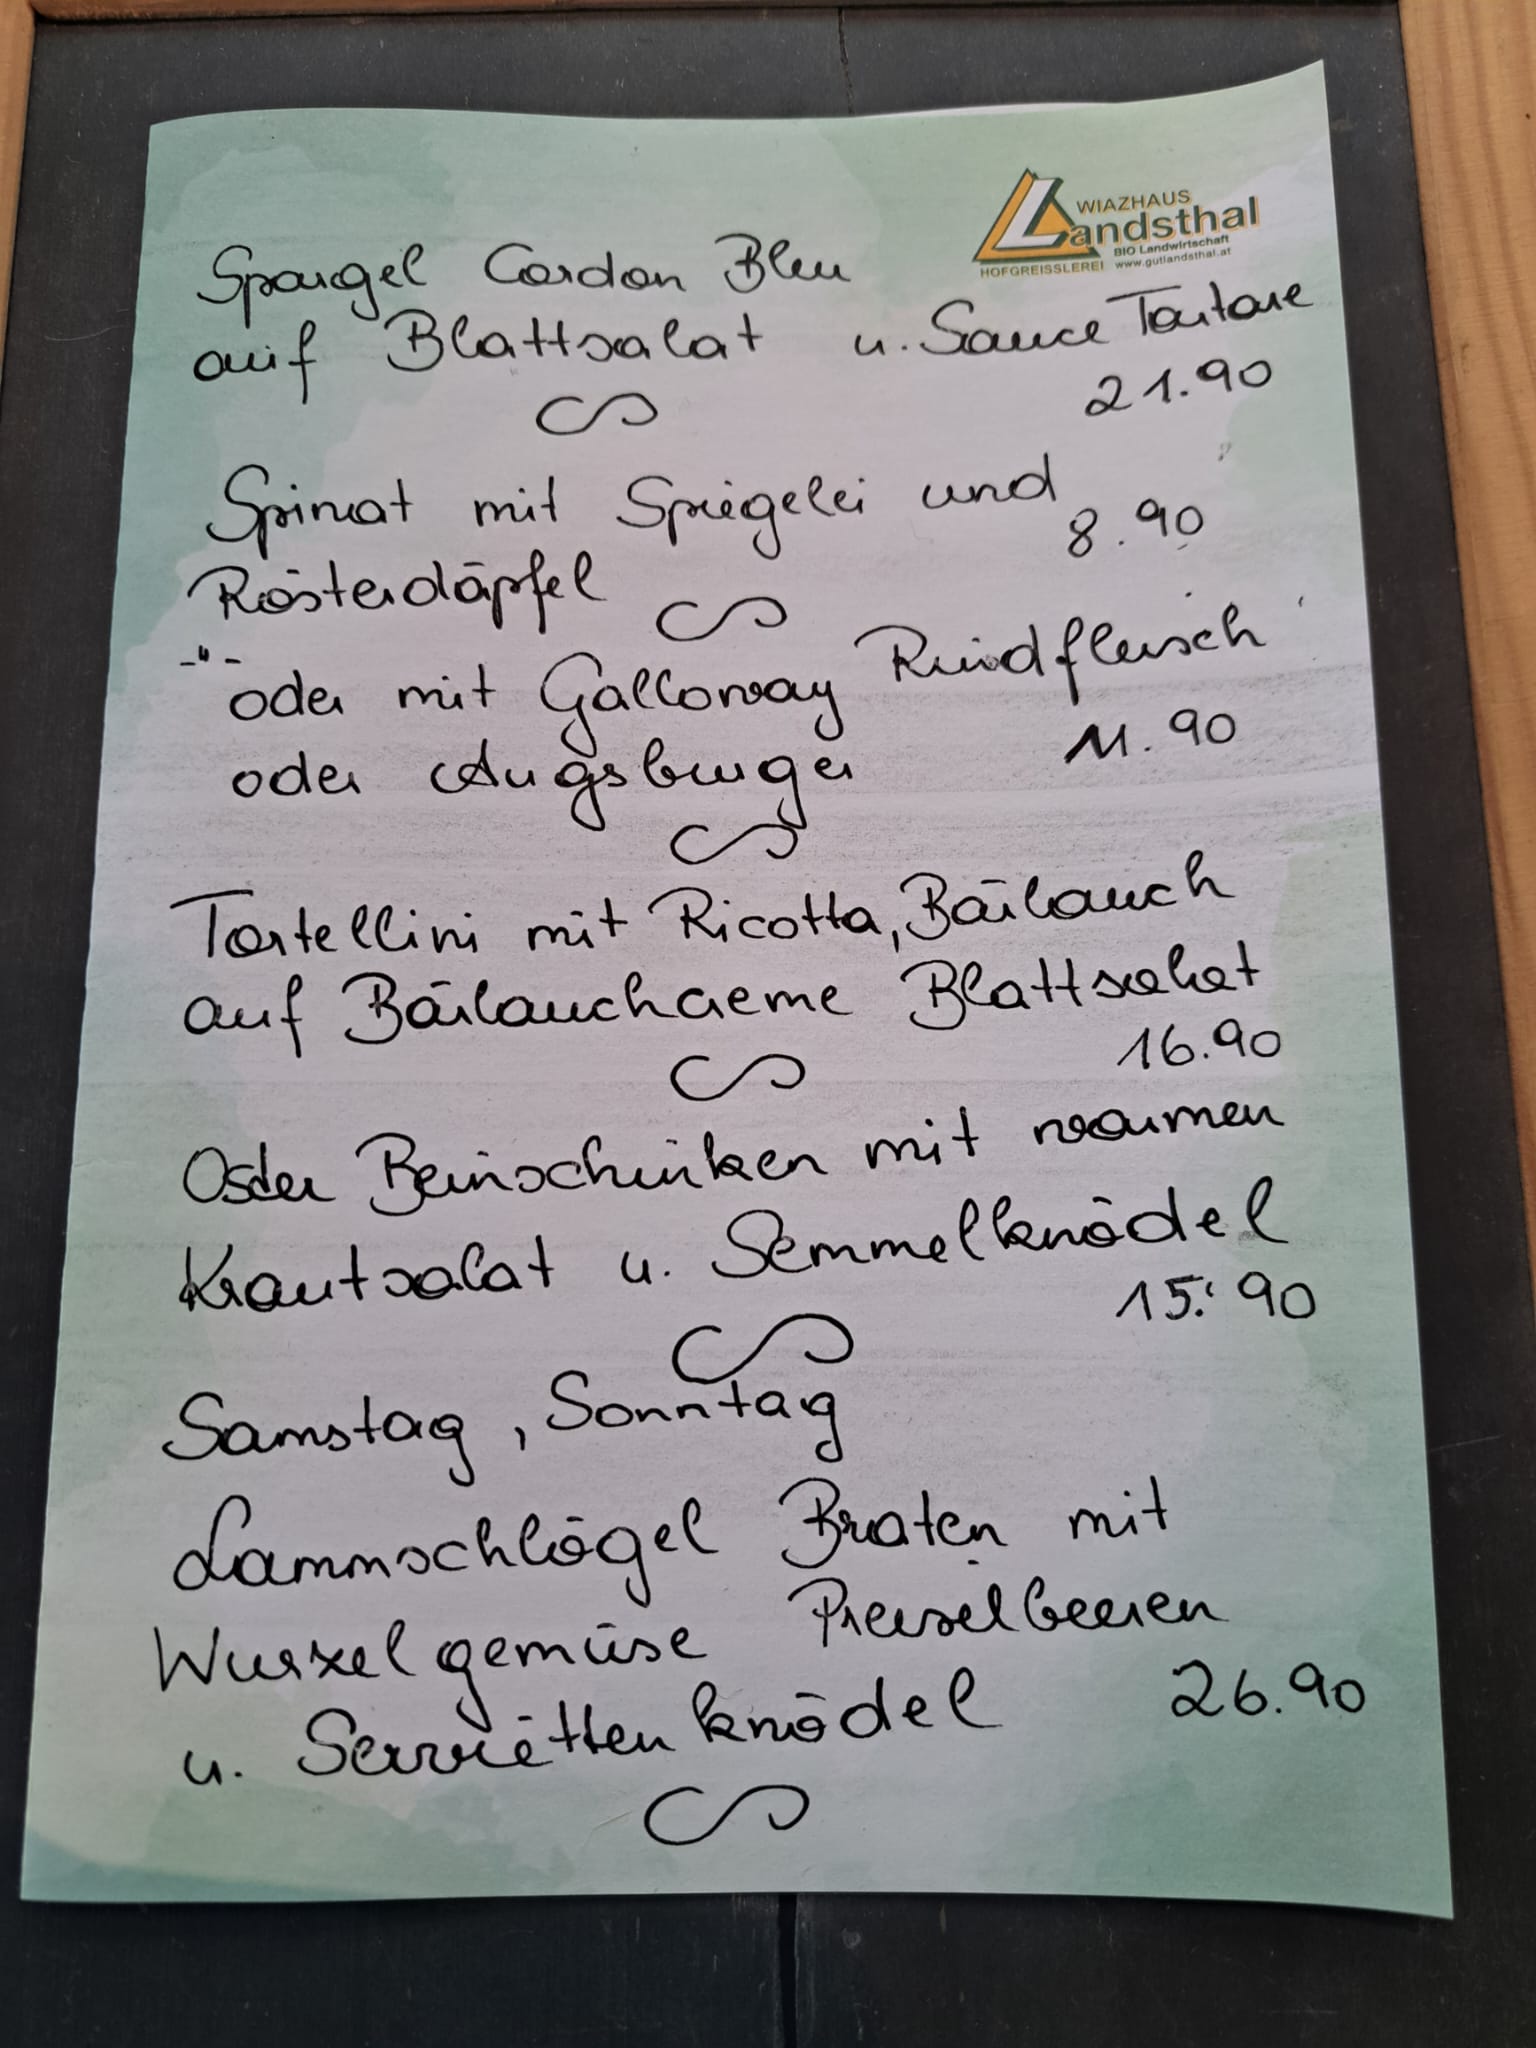 WIAZHAUS
Landsthal
BIO Landwirtschaft
HOFGREISSLEREI www.gutlandsthal.at
Spargel Cordon Bleu
auf Blattsalat u. Sauce Tartare
21.90
Spinat mit Spiegelei und
8.90
Rösterdäpfel
-"-
oder mit Galloway Rindfleisch
oder Augsburger 11.90
Tortellini mit Ricotta, Bärlauch
auf Bärlauchcreme Blattsalat
16.90
Oster Beinschinken mit warmen
Krautsalat u. Semmelknödel
15.90
Samstag, Sonntag
Lammschlögel Braten mit
Wurzelgemüse Preiselbeeren
u. Serviettenknödel 26.90